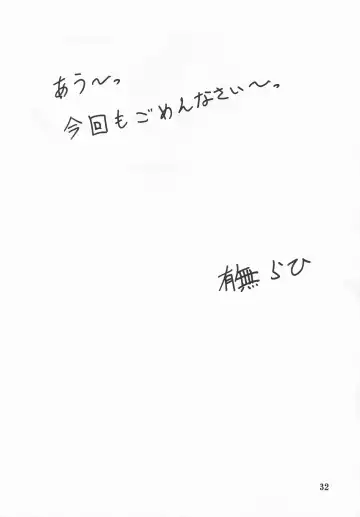 あう～っ
今回もごめんなさい～っ
有無らひ
32